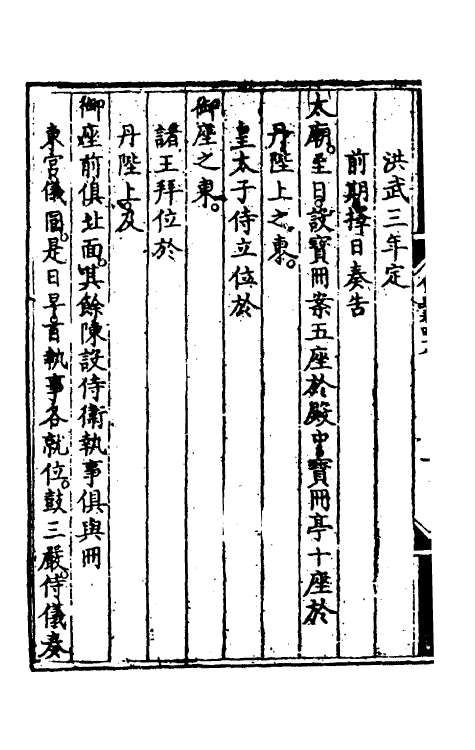 洪武三年定
前期擇日奏告
太廟。至日設寶冊案五座於殿中寶冊亭十座於
丹陛上之東。
皇太子侍立位於
御座之東。
諸王拜位於
丹陛上及
御座前俱北面。其餘陳設侍衛執事俱與冊
東宮儀同。是日早。執事各就位。鼓三嚴。侍儀奏